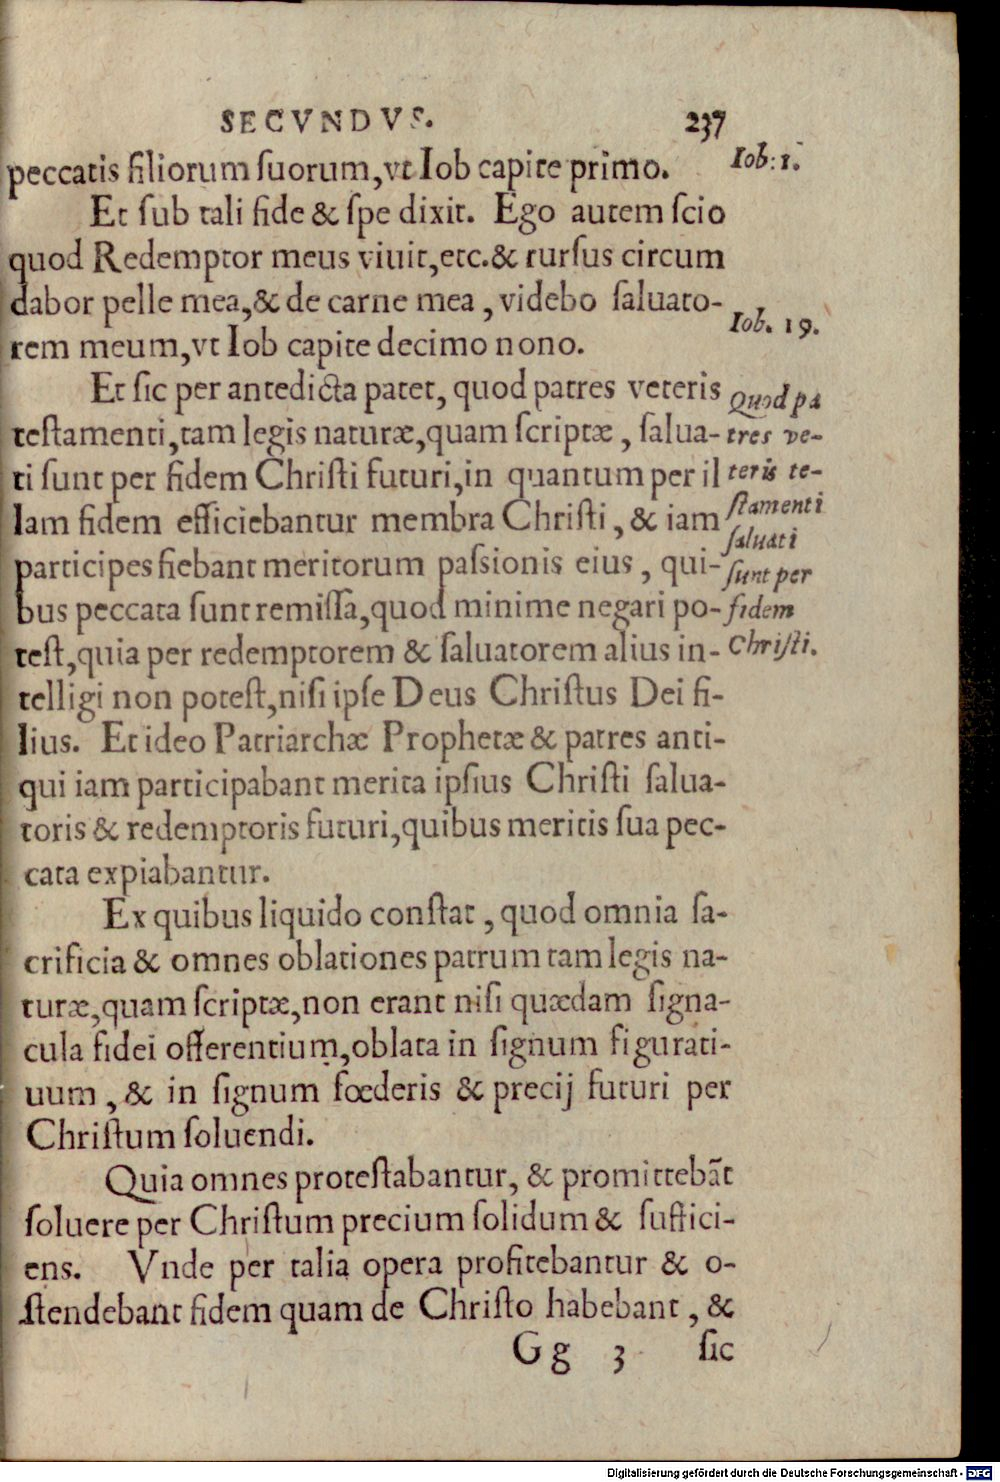 SECVNDVS. 237
peccatis filiorum suorum,vt Iob capite primo.
Iob: 1.
Et sub tali fide & spe dixit. Ego autem scio
quod Redemptor meus viuit,etc.& rursus circum
dabor pelle mea,& de carne mea, videbo saluato-
rem meum,vt Iob capite decimo nono.
Iob. 19.
Et sic per antedicta patet, quod patres veteris
testamenti,tam legis naturæ,quam scriptæ, salua-
ti sunt per fidem Christi futuri,in quantum per il
lam fidem efficiebantur membra Christi, & iam
participes fiebant meritorum passionis eius, qui-
bus peccata sunt remissa,quod minime negari po-
test,quia per redemptorem & saluatorem alius in-
telligi non potest,nisi ipse Deus Christus Dei fi-
lius. Et ideo Patriarchæ Prophetæ & patres anti-
qui iam participabant merita ipsius Christi salua-
toris & redemptoris futuri,quibus meritis sua pec-
cata expiabantur.
Quod pa
tres ve-
teris te-
stamenti
saluati
sunt per
fidem
Christi.
Ex quibus liquido constat, quod omnia sa-
crificia & omnes oblationes patrum tam legis na-
turæ,quam scriptæ,non erant nisi quædam signa-
cula fidei offerentium,oblata in signum figurati-
uum, & in signum fœderis & precij futuri per
Christum soluendi.
Quia omnes protestabantur, & promittebãt
soluere per Christum precium solidum & suffici-
ens. Vnde per talia opera profitebantur & o-
stendebant fidem quam de Christo habebant, &
Gg 3 sic
Digitalisierung gefördert durch die Deutsche Forschungsgemeinschaft - DFG